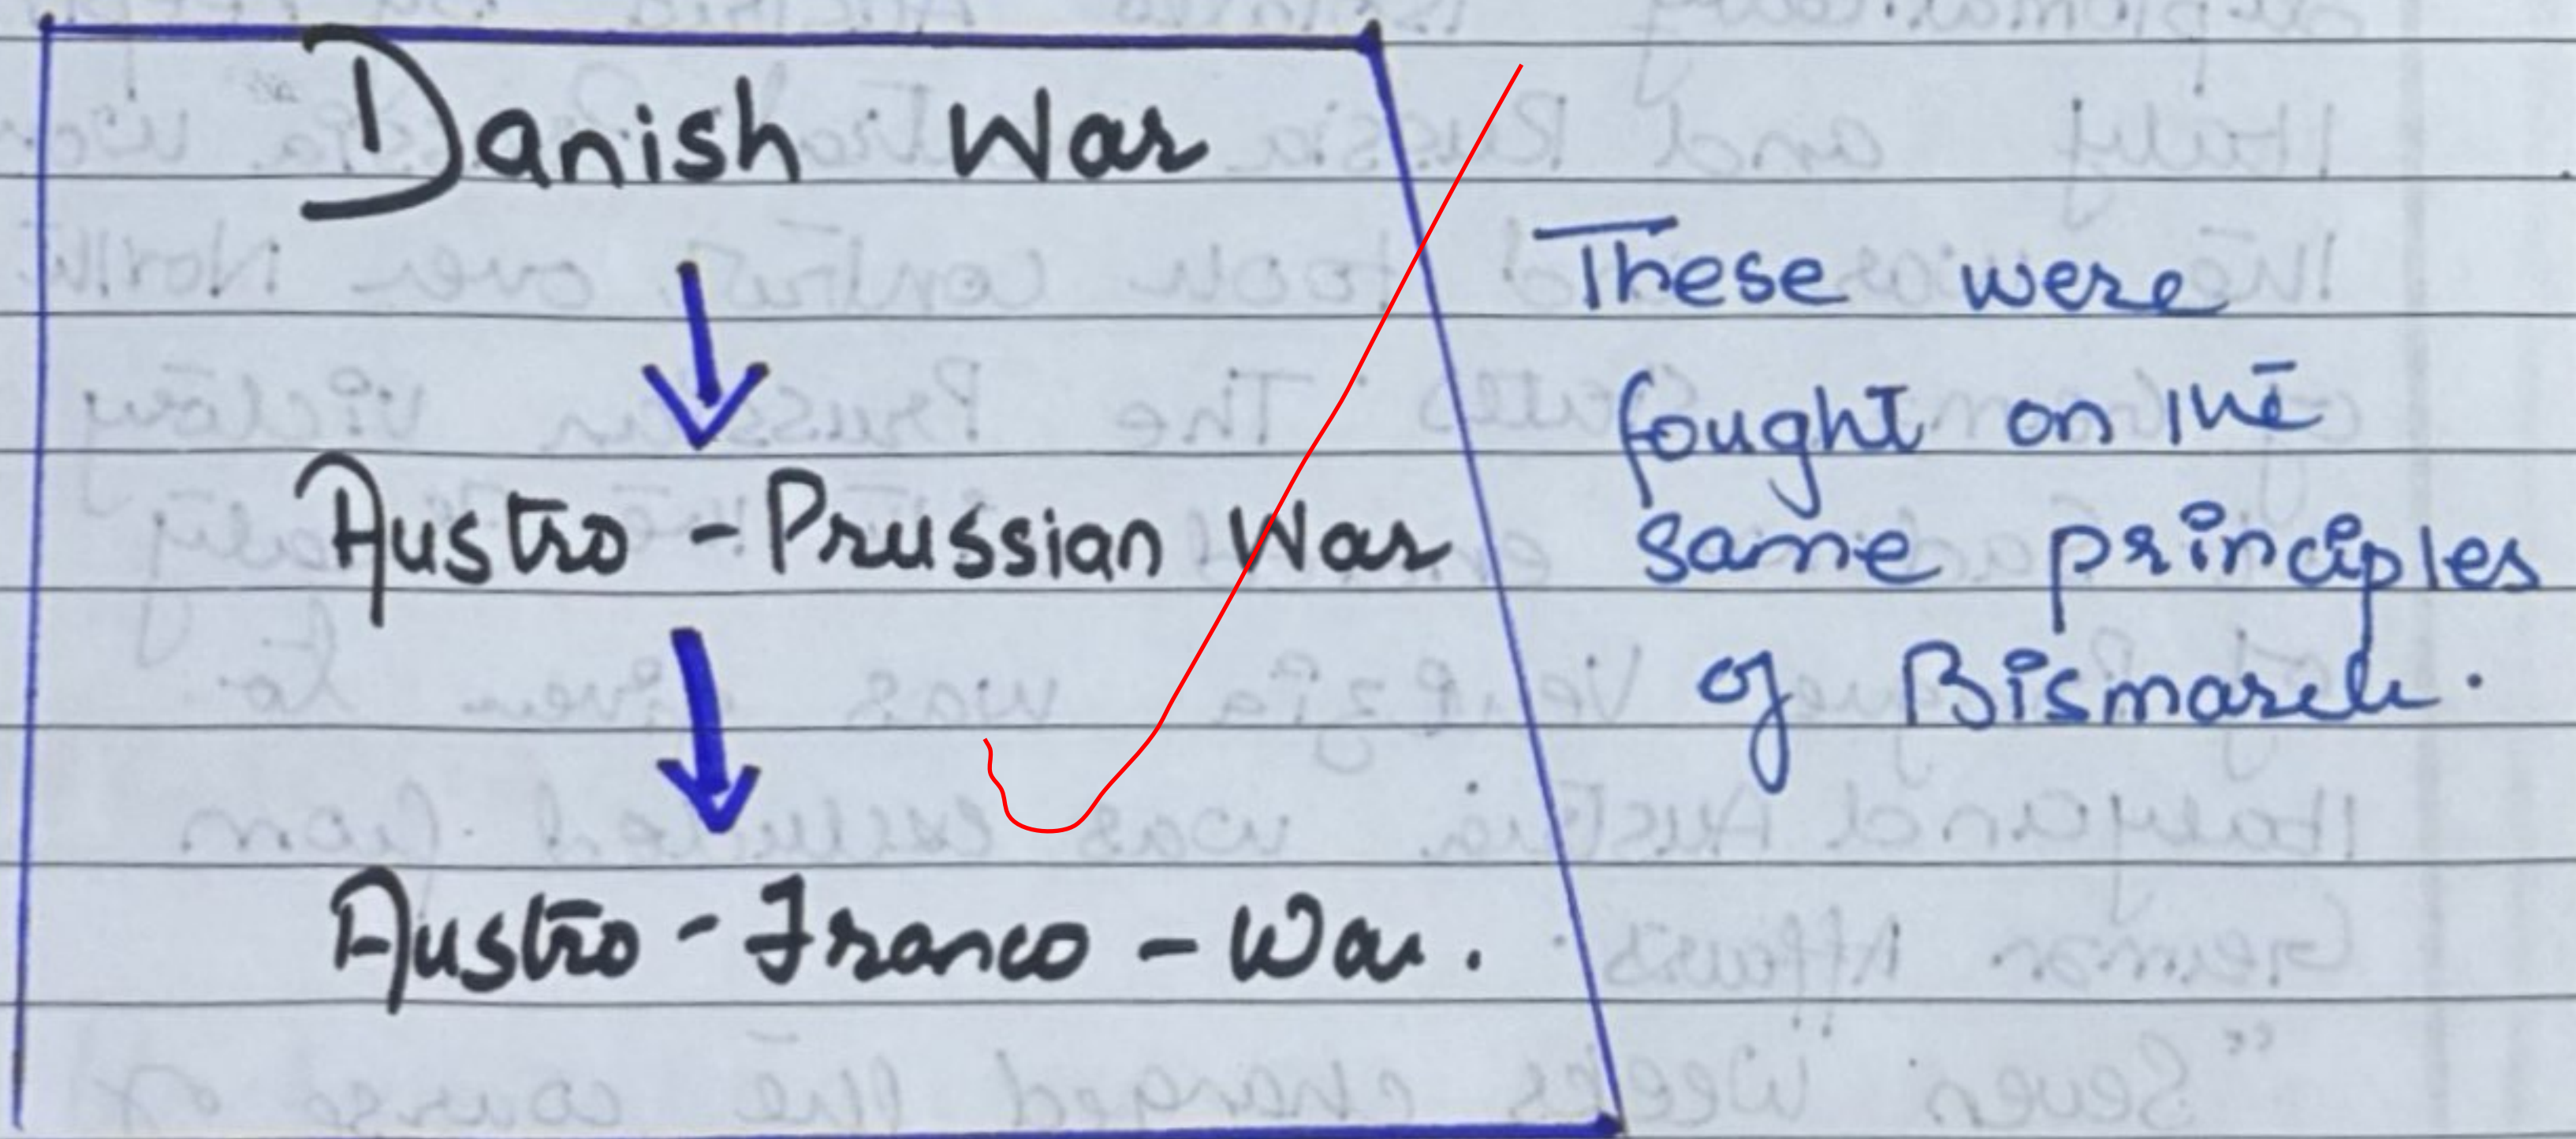 Danish War
Austro - Prussian War
Austro - Franco - War.
These were
fought on the
same principles
of Bismarck.